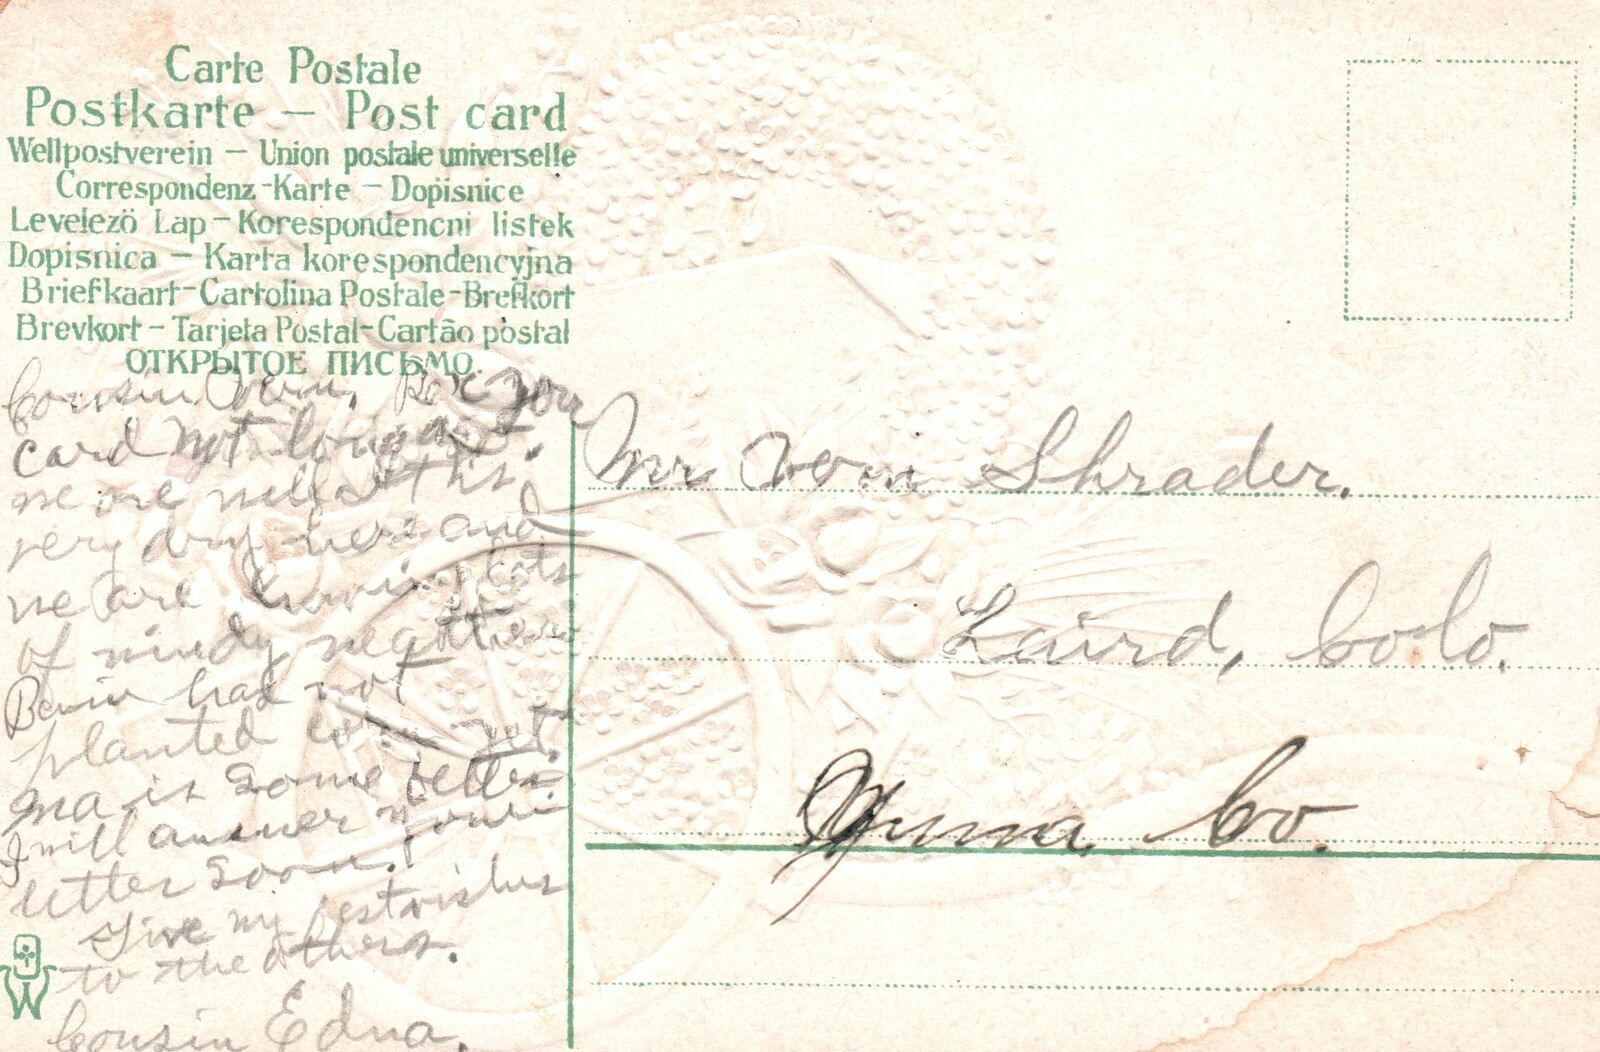 Carte Postale
Postkarte — Post card
Weltpostverein — Union postale universelle
Correspondenz-Karte — Dopisnice
Levelezö Lap — Korespondencni listek
Dopisnica — Karta korespondencyjna
Briefkaart-Cartolina Postale-Brefkort
Brevkort — Tarjeta Postal-Cartão postal
ОТКРЫТОЕ ПИСЬМО.
Cousin Vern, you
card not long ago.
we are well at this
very dry here and
we are having lots
of windy weather
has not
planted corn yet.
ma is some better
I will answer
letter soon.
Give my best wishes
to the others.
Cousin Edna.
Mr Vern Shrader.
Laird, Colo.
Yuma Co.
W